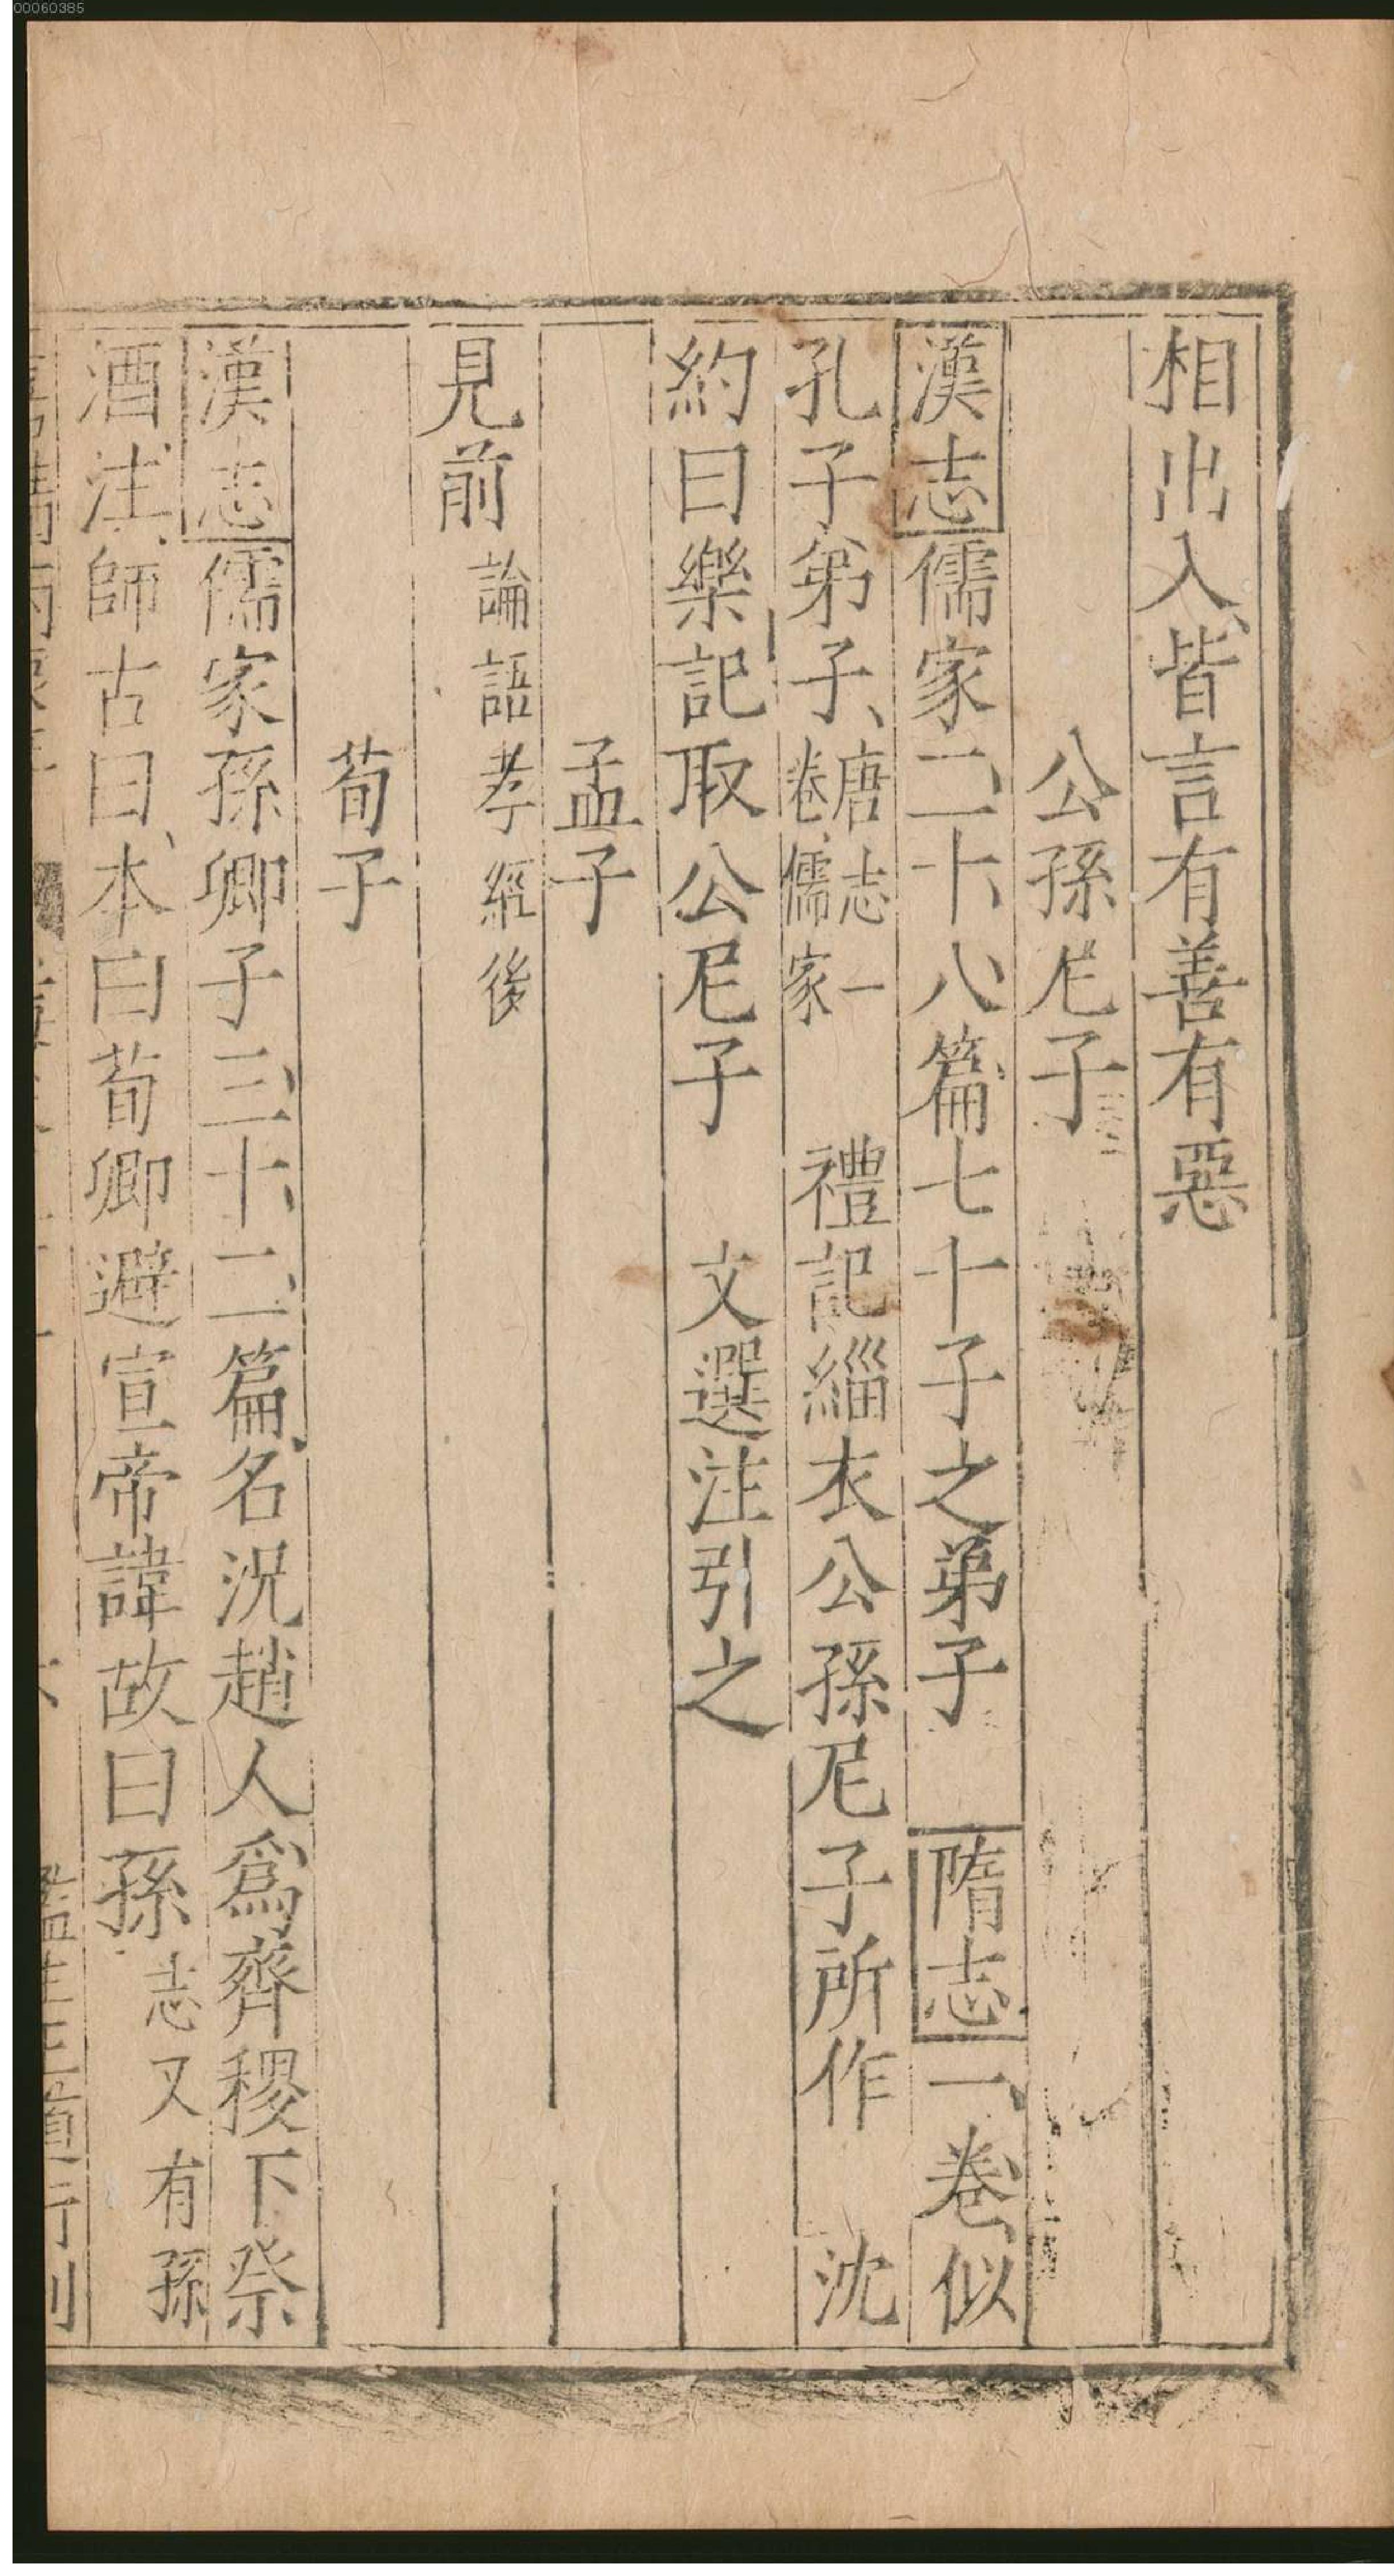 00060385
相出入皆言有善有惡
公孫尼子
漢志儒家二十八篇七十子之弟子　隋志一卷似
孔子弟子、唐志一卷、儒家　禮記緇衣公孫尼子所作　沈
約曰樂記取公尼子　文選注引之
孟子
見前論語孝經後
荀子
漢志儒家孫卿子三十二篇名況趙人爲齊稷下祭
酒注師古曰、本曰荀卿避宣帝諱故曰孫志又有孫